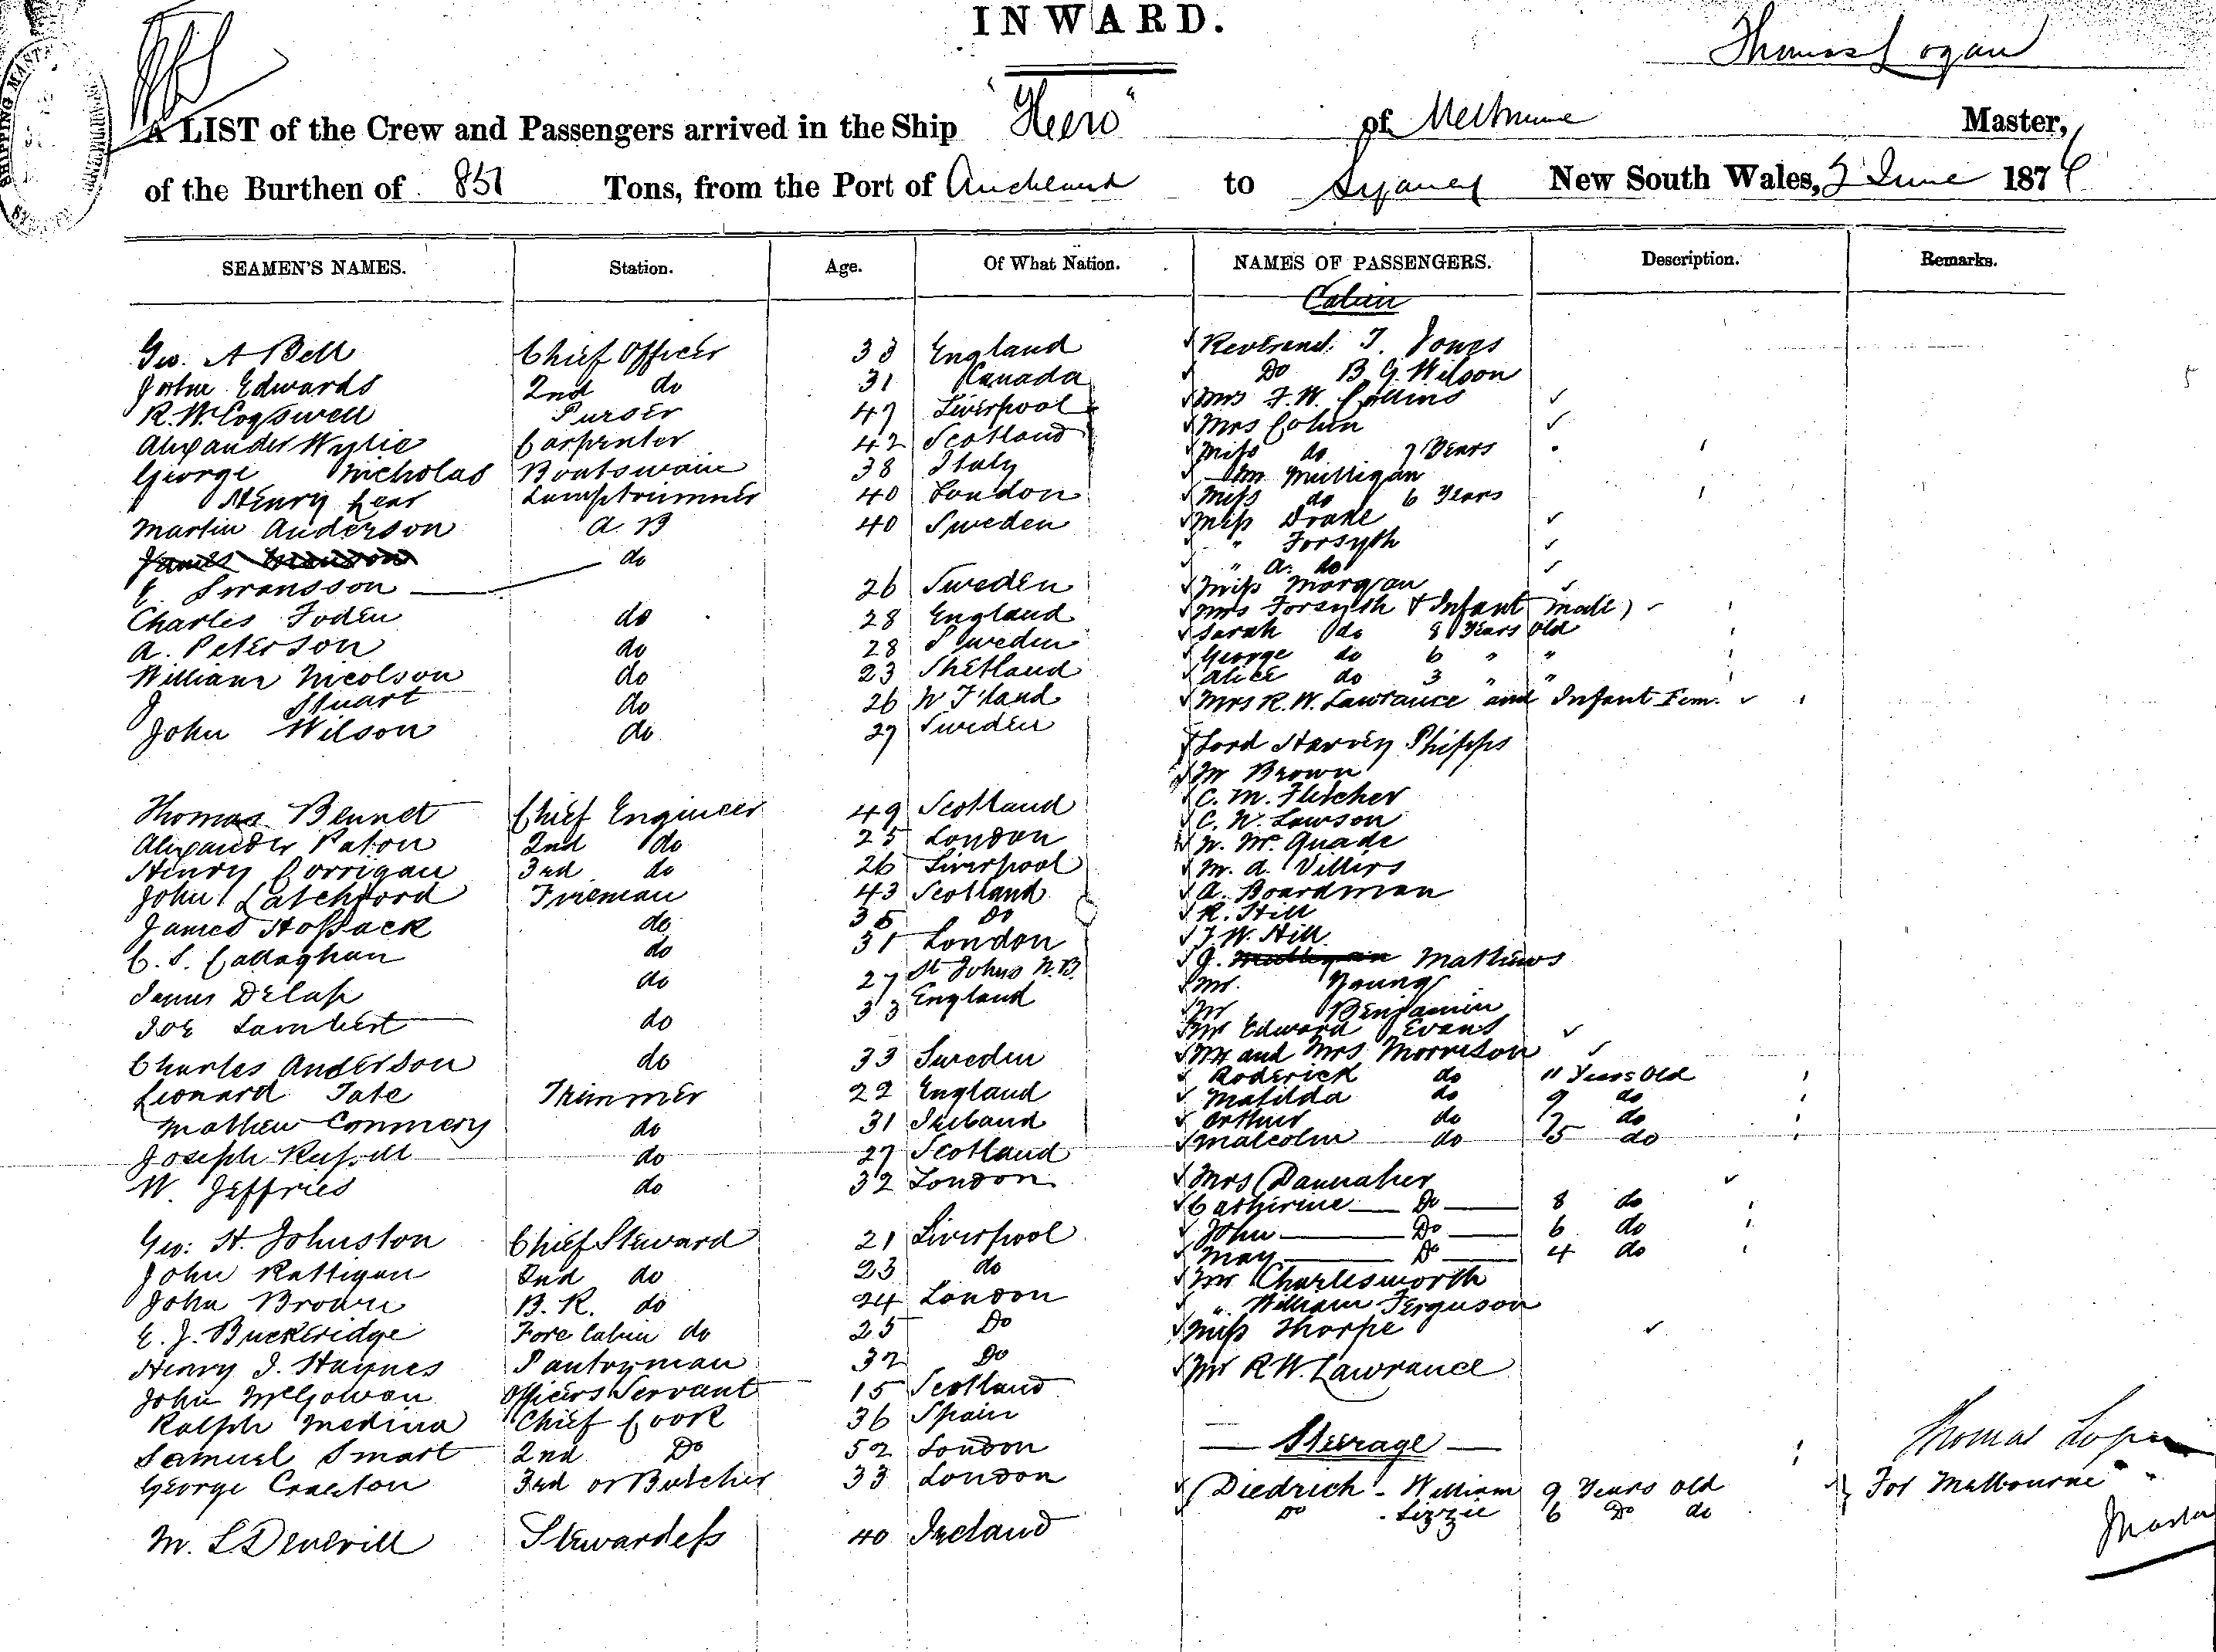 INWARD.
Thomas Logan
A LIST of the Crew and Passengers arrived in the Ship "Hero" of Melbourne Master,
of the Burthen of 851 Tons, from the Port of Auckland to Sydney New South Wales, June 187
SEAMEN'S NAMES. Station. Age. Of What Nation. NAMES OF PASSENGERS. Description. Remarks.
Cabin
Geo. A Bell Chief Officer 33 England Reverend. T. Jones
John Edwards 2nd do 31 Canada Do B. G. Wilson
R. W. Cogswell Purser 47 Liverpool Mrs F. W. Collins
Alexander Wylie Carpenter 42 Scotland Mrs Cohen
George Nicholas Boatswain 38 Italy Miss do 7 Years
Henry Lear Lamptrimmer 40 London Mulligan
Martin Anderson A. B 40 Sweden Miss do 6 Years
do Miss Drake
E. Swansson 26 Sweden " Forsyth
Charles Foden do 28 England " A. do
A. Peterson do 28 Sweden Miss Morgan
William Nicolson do 23 Shetland Mrs Forsyth & Infant Male)
J Stuart do 26 Sarah do 8 Years Old
John Wilson do 27 Sweden George do 6 " "
Alice do 3 " "
Mrs R. W. Lawrance and Infant Fem.
Lord Harvey Phipps
Mr Brown
Thomas Bennet Chief Engineer 49 Scotland C. M. Fletcher
Alexander Paton 2nd do 25 London C. W. Lawson
Henry Corrigan 3rd do 26 Liverpool W. Mc Quade
John Latchford Fireman 43 Scotland M. A. Villers
James Hossack do 35 Do A. Boardman
C. S. Callaghan do 31 London R. Hill
James Delap do 27 St Johns N. B. J. W. Hill
Joe Lambert do 33 England J. Mathews
Mr. Young
Mr Benjamin
Mr Edward Evans
Charles Anderson do 33 Sweden Mr and Mrs Morrison
Leonard Tate Trimmer 22 England Roderick do 11 Years Old
Mathew Commery do 31 Ireland Matilda do 9 do
Joseph Russell do 27 Scotland Arthur do 7 do
W. Jeffries do 32 London Malcolm do 5 do
Mrs Dannaher
Catherine Do 8 do
Geo: H. Johnston Chief Steward 21 Liverpool John Do 6 do
John Rattigan 2nd do 23 do May Do 4 do
John Brown B. R. do 24 London Mr Charlesworth
E. J. Buckeridge Fore Cabin do 25 Do " William Ferguson
Henry J. Haynes Pantryman 32 Do Miss Thorpe
John McGowan Officers Servant 15 Scotland Mr R W. Lawrance
Ralph Medina Chief Cook 36 Spain
Samuel Smart 2nd Do 52 London Steerage
George Craxton 3rd or Butcher 33 London Diedrich - William 9 Years Old For Melbourne
Do - Lizzie 6 Do do
M. L. Deverill Stewardess 40 Ireland
Thomas Logan
Master